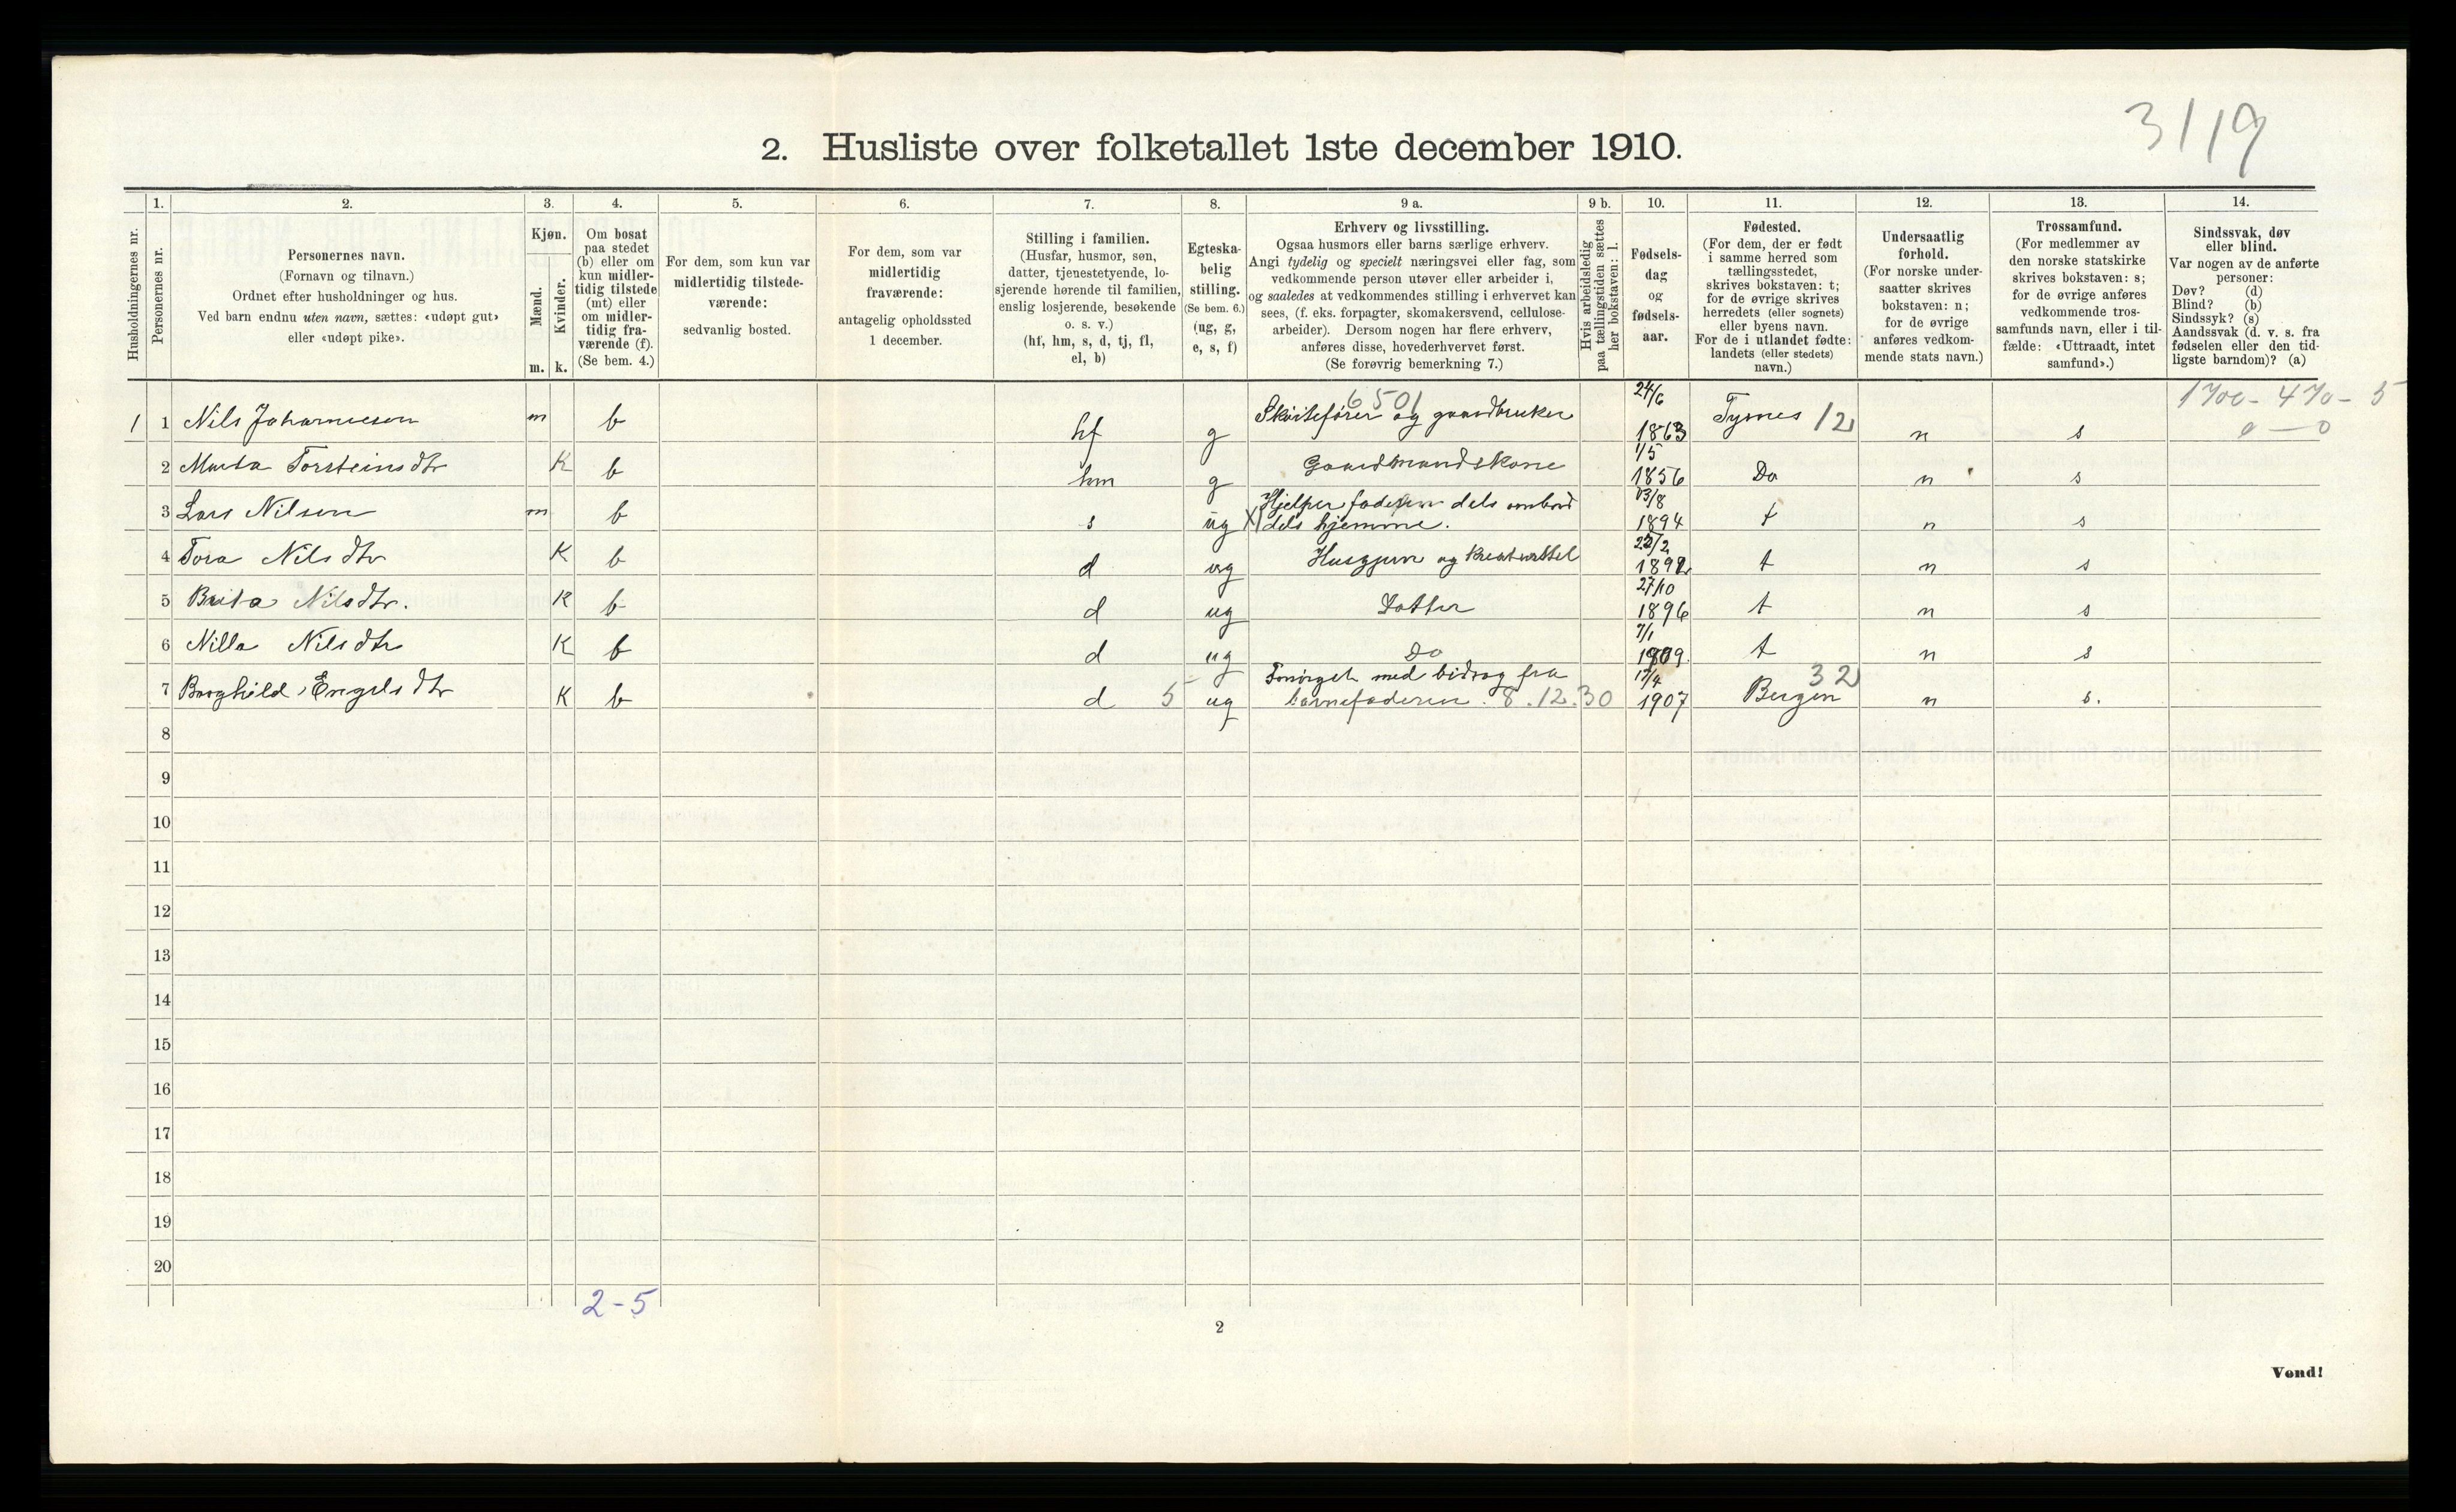 3/19
2. Husliste over folketallet 1ste december 1910.
1. 2. 3. 4. 5. 6. 7. 8. 9 a. 9 b. 10. 11. 12. 13. 14.
Husholdningernes nr.
Personernes nr.
Personernes navn.
(Fornavn og tilnavn.)
Ordnet efter husholdninger og hus.
Ved barn endnu uten navn, sættes: «udøpt gut»
eller «udøpt pike».
Kjøn.
Mænd.
Kvinder.
m. k.
Om bosat
paa stedet
(b) eller om
kun midler-
tidig tilstede
(mt) eller
om midler-
tidig fra-
værende (f).
(Se bem. 4.)
For dem, som kun var
midlertidig tilstede-
værende:
sedvanlig bosted.
For dem, som var
midlertidig
fraværende:
antagelig opholdssted
1 december.
Stilling i familien.
(Husfar, husmor, søn,
datter, tjenestetyende, lo-
sjerende hørende til familien,
enslig losjerende, besøkende
o. s. v.)
(hf, hm, s, d, tj, fl,
el, b)
Egteska-
belig
stilling.
(Se bem. 6.)
(ug, g,
e, s, f)
Erhverv og livsstilling.
Ogsaa husmors eller barns særlige erhverv.
Angi tydelig og specielt næringsvei eller fag, som
vedkommende person utøver eller arbeider i,
og saaledes at vedkommendes stilling i erhvervet kan
sees, (f. eks. forpagter, skomakersvend, cellulose-
arbeider). Dersom nogen har flere erhverv,
anføres disse, hovederhvervet først.
(Se forøvrig bemerkning 7.)
Hvis arbeidsledig
paa tællingstiden sættes
her bokstaven: l.
Fødsels-
dag
og
fødsels-
aar.
Fødested.
(For dem, der er født
i samme herred som
tællingsstedet,
skrives bokstaven: t;
for de øvrige skrives
herredets (eller sognets)
eller byens navn.
For de i utlandet fødte:
landets (eller stedets)
navn.)
Undersaatlig
forhold.
(For norske under-
saatter skrives
bokstaven: n;
for de øvrige
anføres vedkom-
mende stats navn.)
Trossamfund.
(For medlemmer av
den norske statskirke
skrives bokstaven: s;
for de øvrige anføres
vedkommende tros-
samfunds navn, eller i til-
fælde: «Uttraadt, intet
samfund».)
Sindssvak, døv
eller blind.
Var nogen av de anførte
personer:
Døv? (d)
Blind? (b)
Sindssyk? (s)
Aandssvak (d. v. s. fra
fødselen eller den tid-
ligste barndom)? (a)
6501
1700 - 470 - 5
0 — 0
1 1 Nils Johannesen m b hf g Skøitefører og gaardbruker 24/6 1863 Tysnes 12 n s
2 Marta Torsteinsdtr K b hm g Gaardmandskone 1/5 1856 Do n s
3 Lars Nilsen m b s ug X Hjelper faderen dels ombord
dels hjemme. 13/8 1894 t n s
4 Tora Nilsdtr K b d ug Husgjern og kreaturstel 22/2 1892 t n s
5 Brita Nilsdtr. K b d ug Datter 27/10 1896 t n s
6 Nilla Nilsdtr K b d ug Do 7/1 1909 t n s
7 Borghild Engelsdtr K b d 5 ug Forsörget med bidrag fra
barnefaderen. 8.12.30 17/4 1907 Bergen 32 n s.
8
9
10
11
12
13
14
15
16
17
18
19
20
2-5
2
Vend!